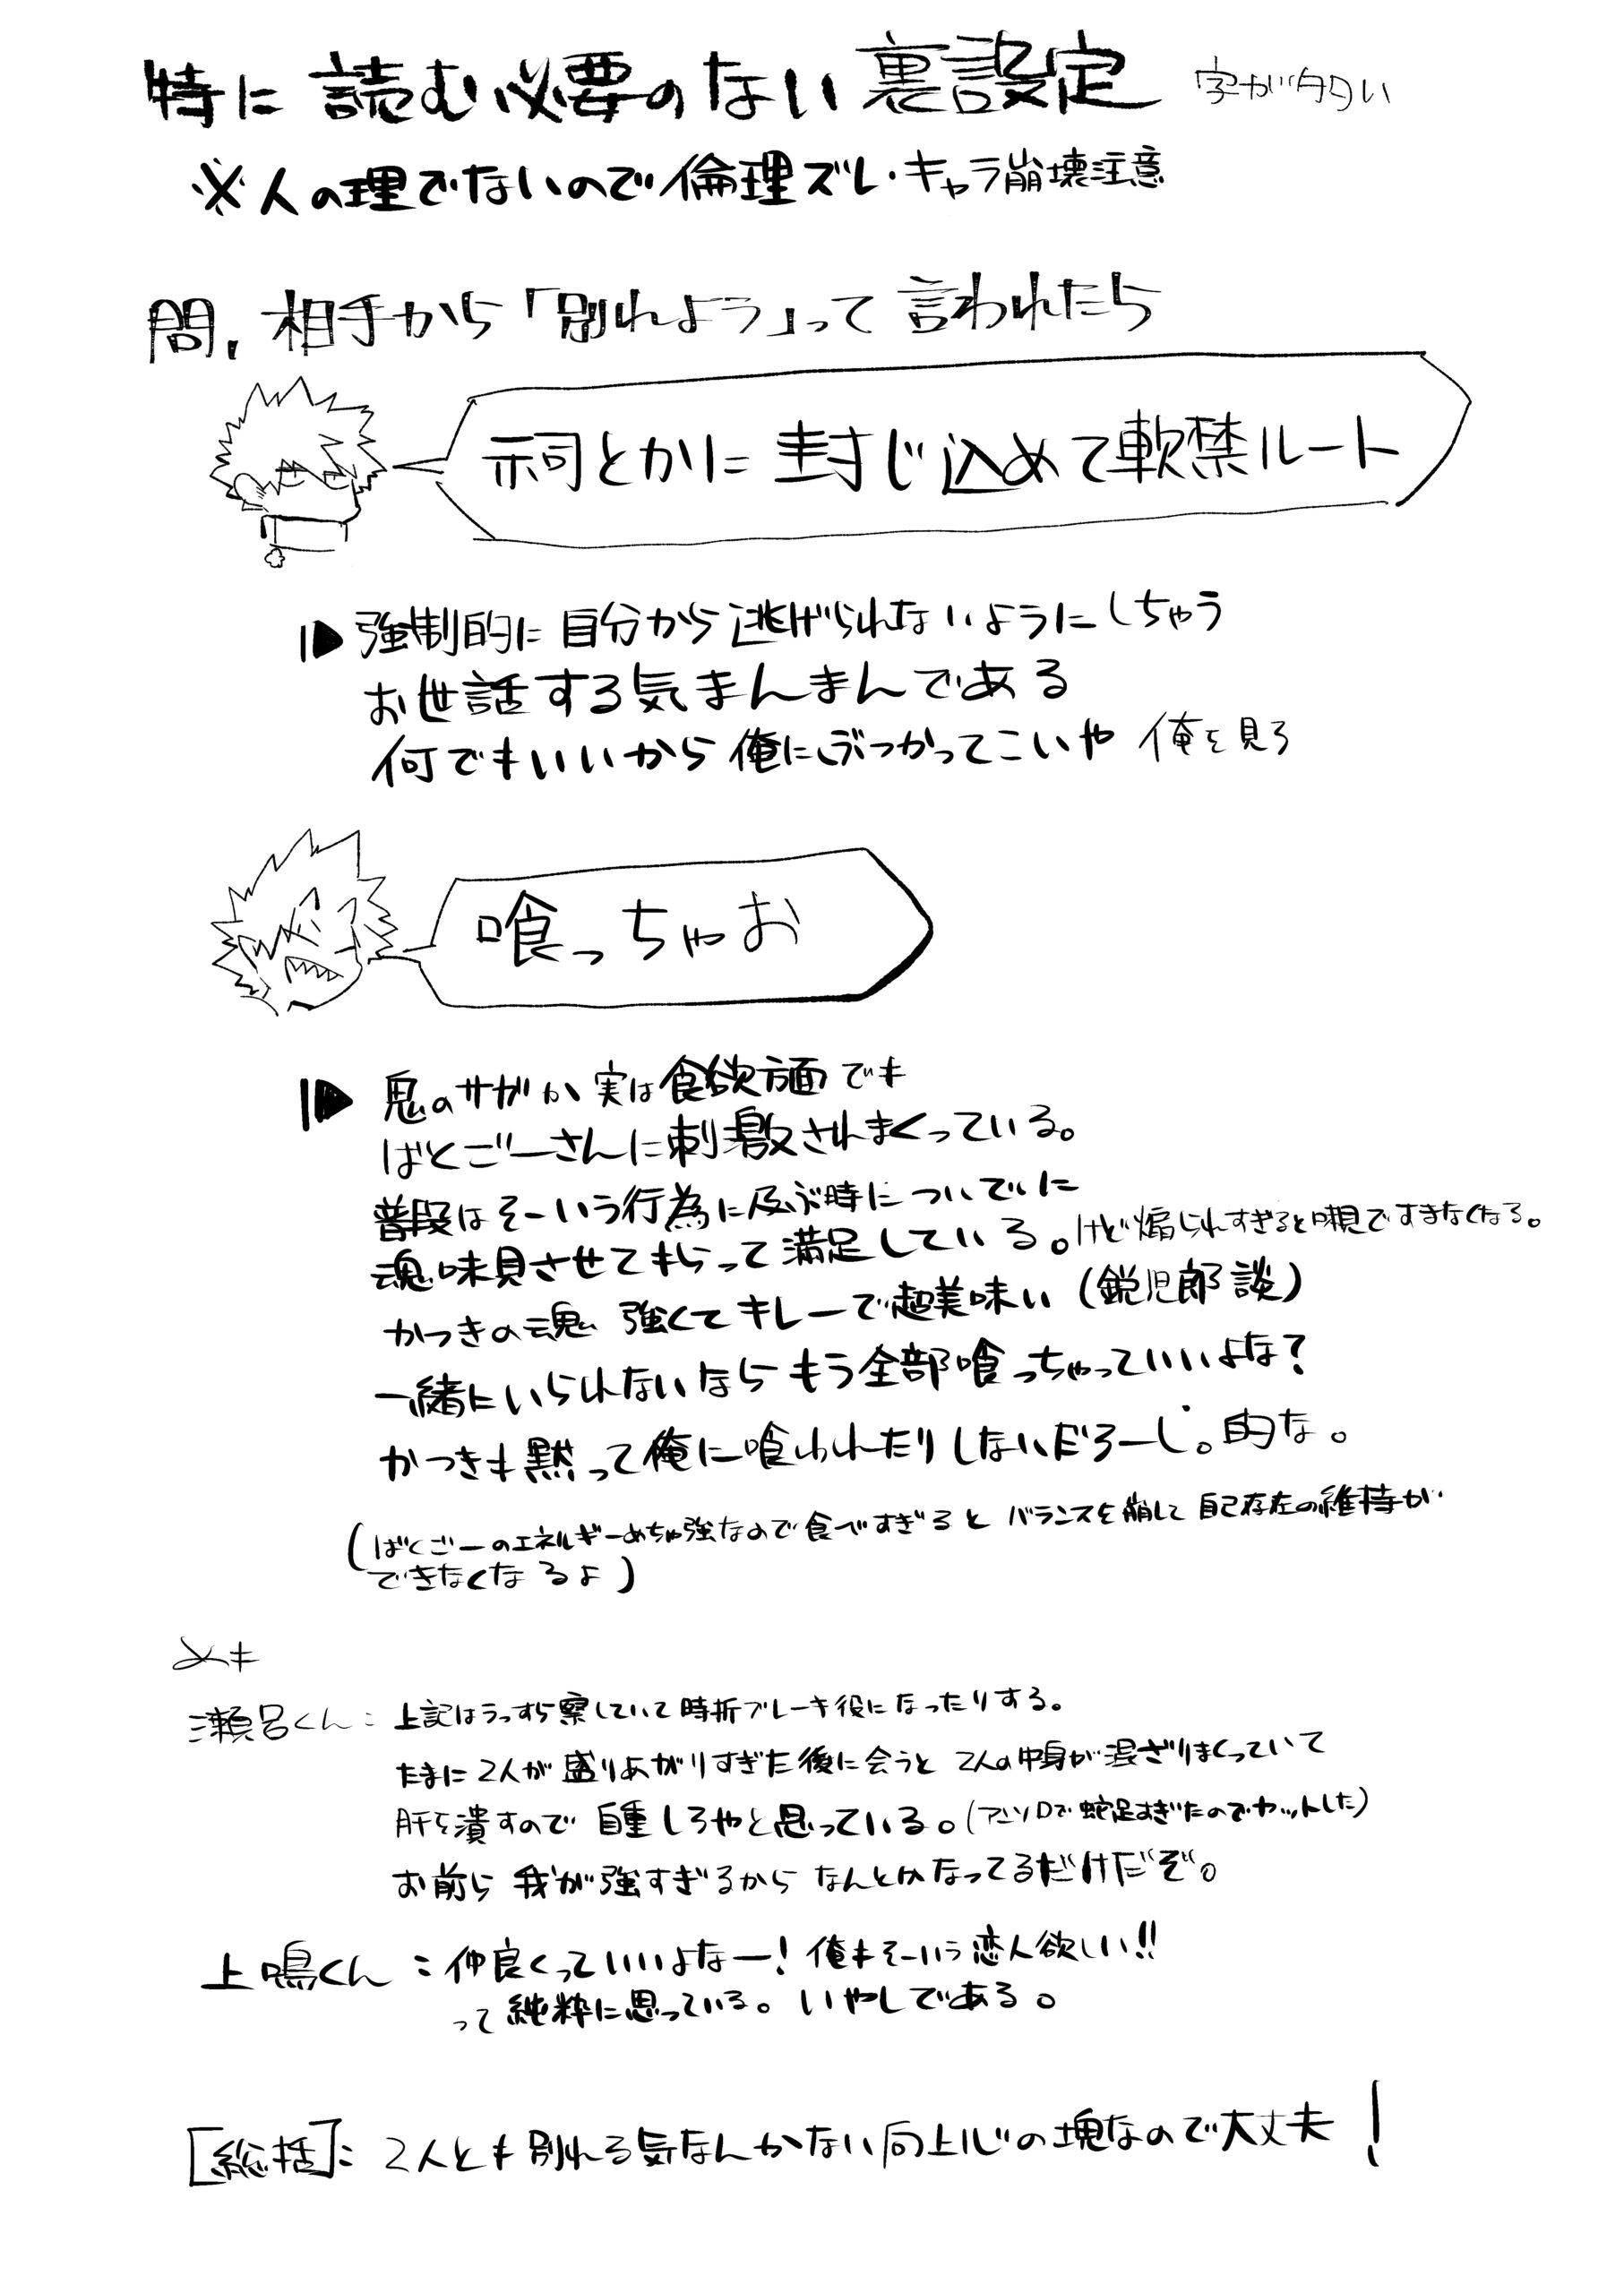 特に読む必要のない裏設定 字が多い
※人の理でないので倫理ズレ・キャラ崩壊注意
問,相手から「別れよう」って言われたら
祠とかに封じ込めて軟禁ルート
強制的に自分から逃げられないようにしちゃう
お世話する気まんまんである
何でもいいから俺にぶつかってこいや 俺を見ろ
喰っちゃお
鬼のサガか実は食欲方面でも
ばくごーさんに刺激されまくっている。
普段はそーいう行為に及ぶ時についでに
魂味見させてもらって満足している。けど煽られすぎると味見ですまなくなる。
かつきの魂 強くてキレーで超美味い(鋭児郎談)
一緒にいられないならもう全部喰っちゃっていいよな?
かつきも黙って俺に喰われたりしないだろーし。的な。
(ばくごーのエネルギーめちゃ強なので食べすぎるとバランスを崩して自己存在の維持が
できなくなるよ)
メモ
瀬呂くん:上記はうっすら察していて時折ブレーキ役になったりする。
たまに2人が盛りあがりすぎた後に会うと2人の中身が混ざりまくっていて
肝を潰すので自重しろやと思っている。(アンソロで蛇足すぎたのでカットした)
お前ら我が強すぎるからなんとかなってるだけだぞ。
上鳴くん:仲良くっていいよなー!俺もそーいう恋人欲しい!!
って純粋に思っている。いやしである。
[総括]:2人とも別れる気なんかない向上心の塊なので大丈夫!